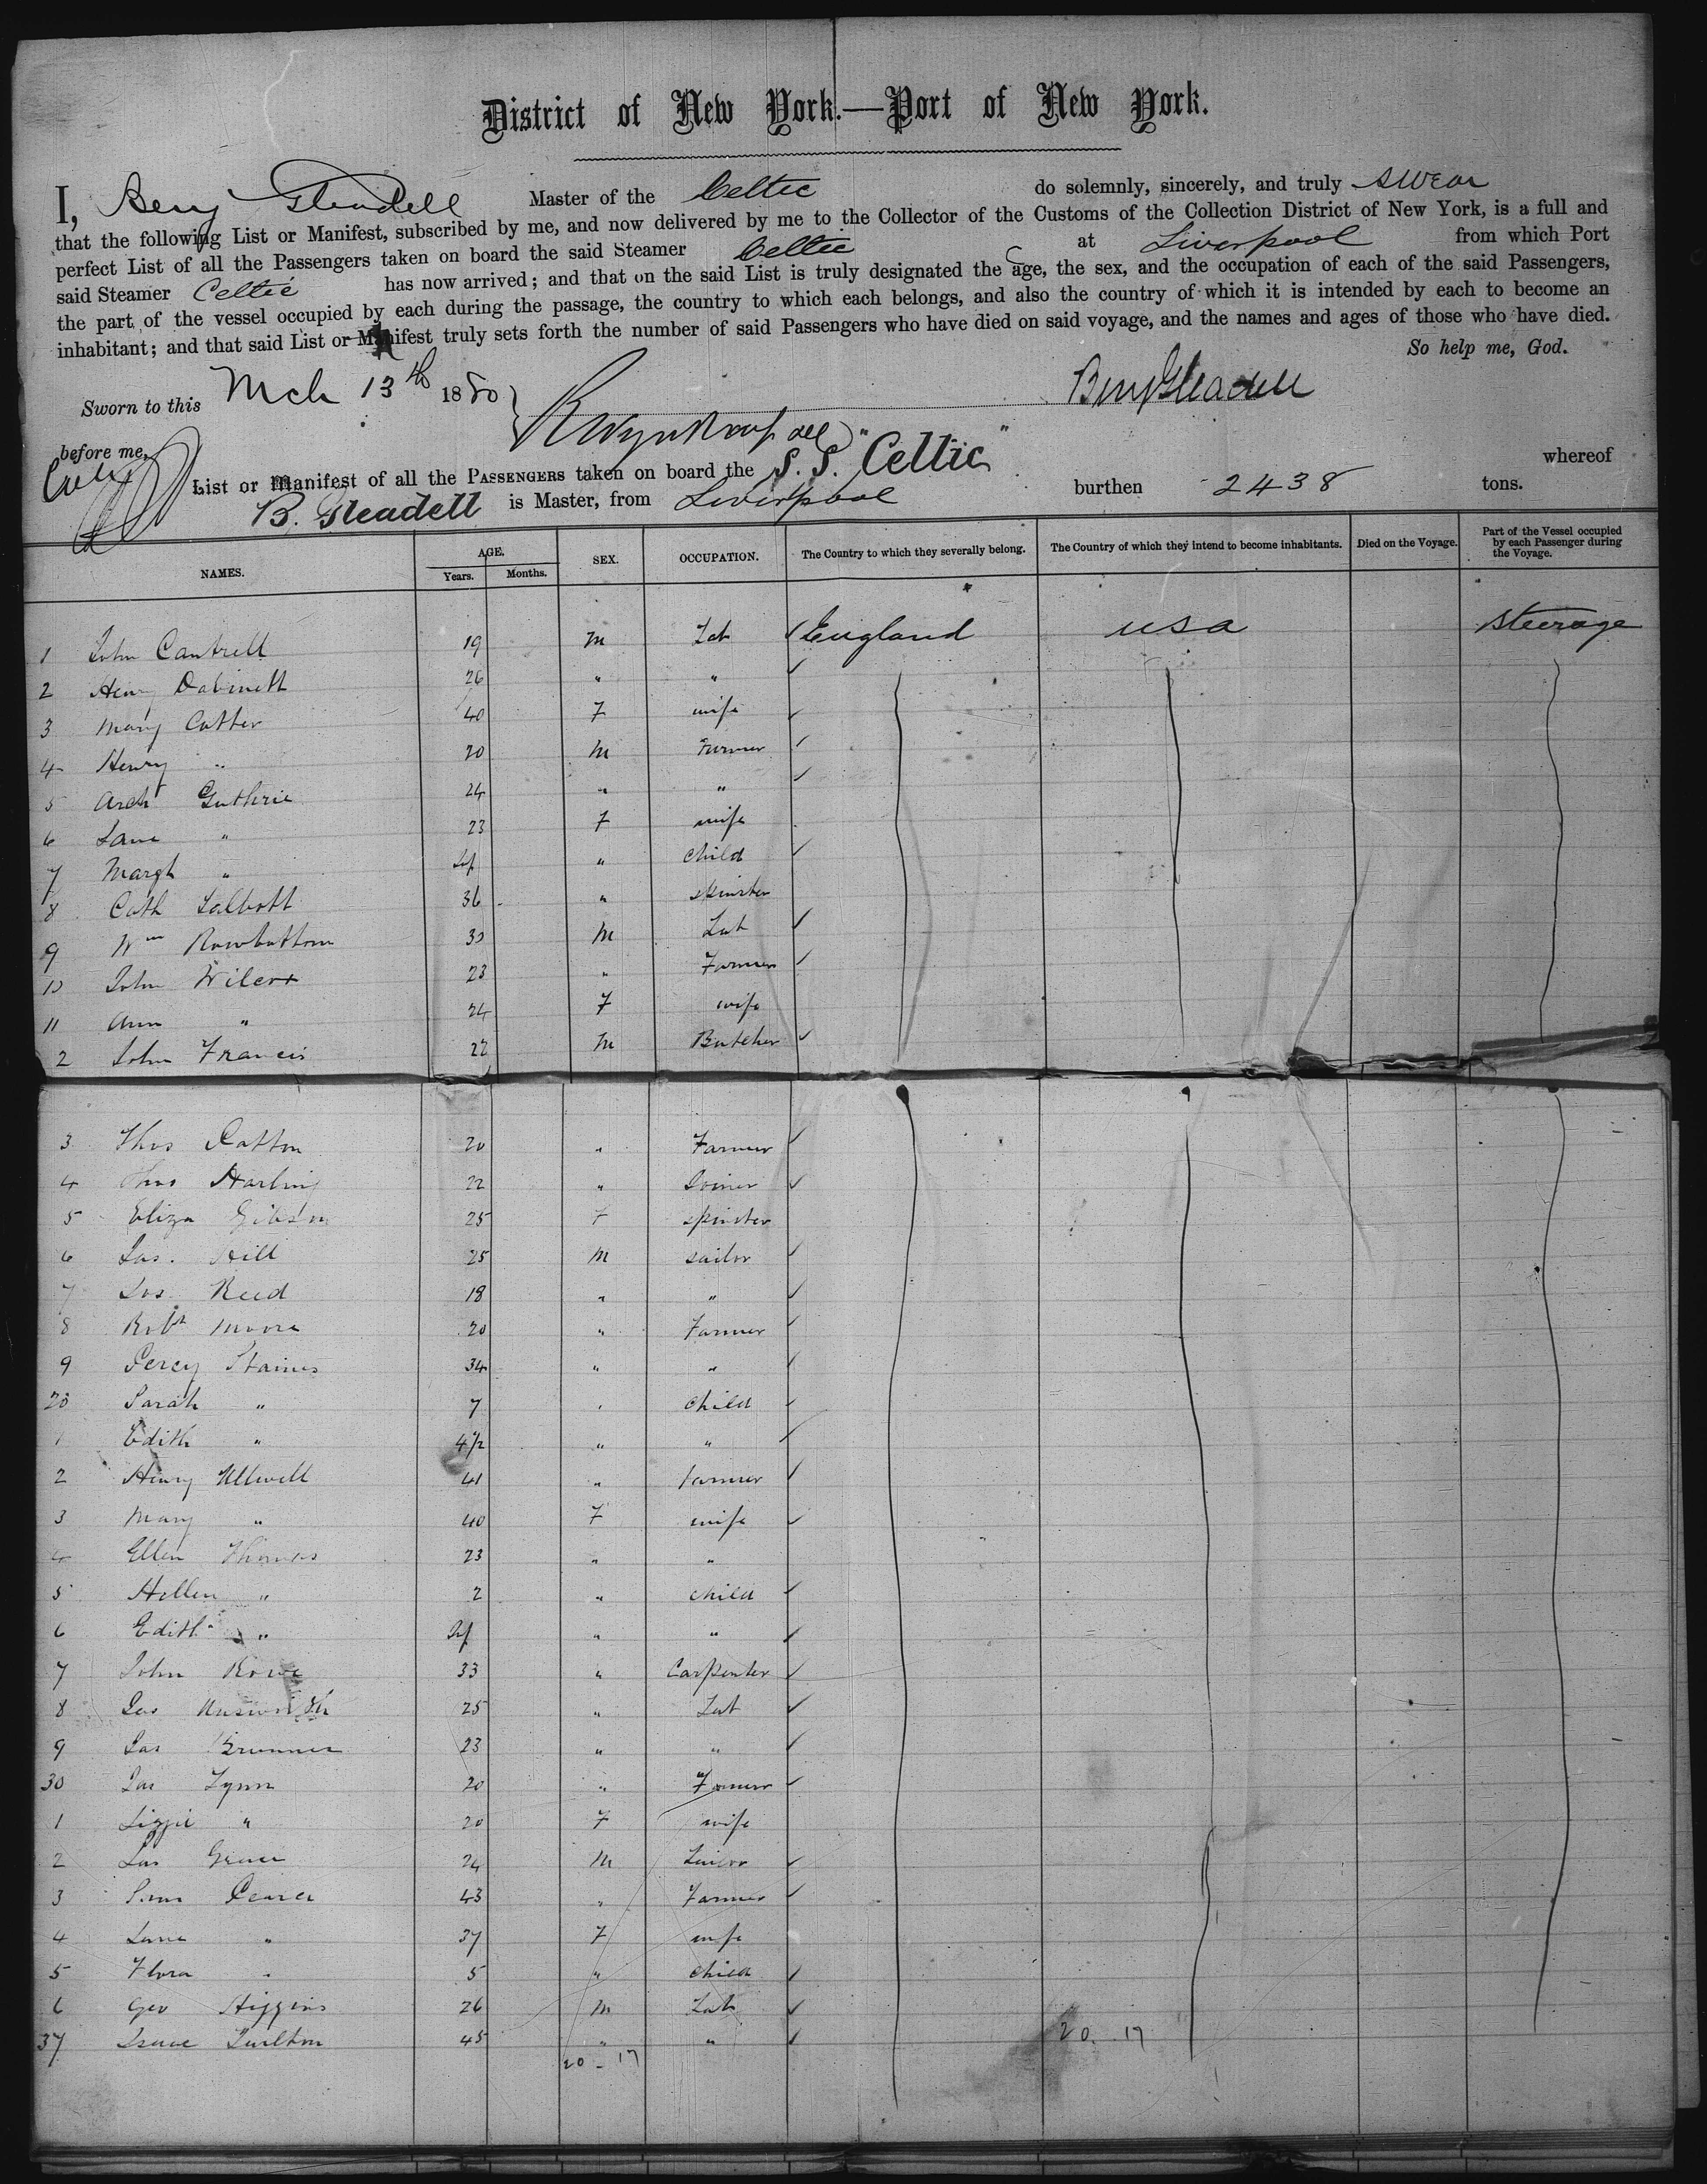 District of New York.—Port of New York.
I, Benj Gleadell Master of the Celtic do solemnly, sincerely, and truly swear
that the following List or Manifest, subscribed by me, and now delivered by me to the Collector of the Customs of the Collection District of New York, is a full and
perfect List of all the Passengers taken on board the said Steamer Celtic at Liverpool from which Port
said Steamer Celtic has now arrived; and that on the said List is truly designated the age, the sex, and the occupation of each of the said Passengers,
the part of the vessel occupied by each during the passage, the country to which each belongs, and also the country of which it is intended by each to become an
inhabitant; and that said List or Manifest truly sets forth the number of said Passengers who have died on said voyage, and the names and ages of those who have died.
So help me, God.
Sworn to this Mch 13th 1880 Benj Gleadell
before me,
List or Manifest of all the PASSENGERS taken on board the S. S. "Celtic" whereof
B. Gleadell is Master, from Liverpool burthen 2438 tons.
NAMES. AGE. Years. Months. SEX. OCCUPATION. The Country to which they severally belong. The Country of which they intend to become inhabitants. Died on the Voyage. Part of the Vessel occupied by each Passenger during the Voyage.
1 John Cantrell 19 M Lab England USA Steerage
2 Henry Dabinett 26 " "
3 Mary Cotter 40 F wife
4 Henry " 20 M Farmer
5 Arch Guthrie 24 " "
6 Jane " 23 F wife
7 Margt " Inf " child
8 Cath Talbott 36 " spinster
9 Wm Rowbottom 30 M Lab
10 John Wilcox 23 " Farmer
11 Ann " 24 F wife
2 John Francis 22 M Butcher
3 Thos 20 " Farmer
4 Thos Harling 22 " Joiner
5 Eliza Gibson 25 F spinster
6 Jas. Hill 25 M sailor
7 Jos Reed 18 " "
8 Robt Moore 20 " Farmer
9 Percy Staines 34 " "
20 Sarah " 7 " child
1 Edith " 4½ " "
2 Henry 41 " farmer
3 Mary " 40 F wife
4 Ellen Thomas 23 " "
5 Hellen " 2 " child
6 Edith " Inf " "
7 John Rowe 33 " Carpenter
8 Jas 25 " Lab
9 Jas 23 " "
30 Jas Lynn 20 " Farmer
1 Lizzie " 20 F wife
2 Jas 24 M
3 Sam Pearce 43 " Farmer
4 Jane " 37 F wife
5 Flora " 5 " child
6 Geo Higgins 26 M Lab
37 Isaac 45 " "
20 - 17 20 - 17